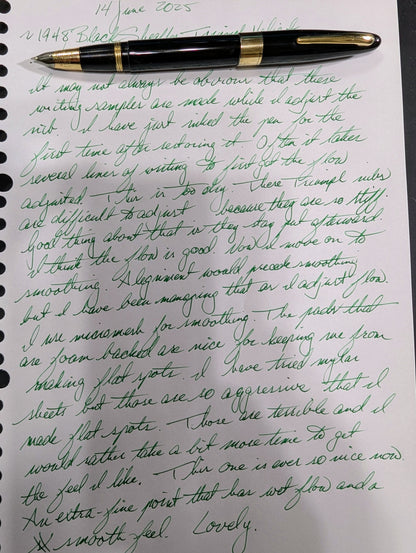 14 June 2025
~1948 Black Sheaffer Triumph
It may not always be obvious that these
writing samples are made while I adjust the
nib. I have just inked the pen for the
first time after restoring it. Often it takes
several lines of writing to first get the flow
adjusted. This is too dry. These Triumph nibs
are difficult to adjust because they are so stiff.
Good thing about that is they stay put afterward.
I think the flow is good. Now I move on to
smoothing. Alignment would precede smoothing
but I have been managing that as I adjust flow.
I use micromesh for smoothing. The pads that
are foam backed are nice for keeping me from
making flat spots. I have tried mylar
sheets but those are so aggressive that I
made flat spots. Those are terrible and I
would rather take a bit more time to get
the feel I like. This one is ever so nice now.
An extra-fine point that has wet flow and a
smooth feel. Lovely.